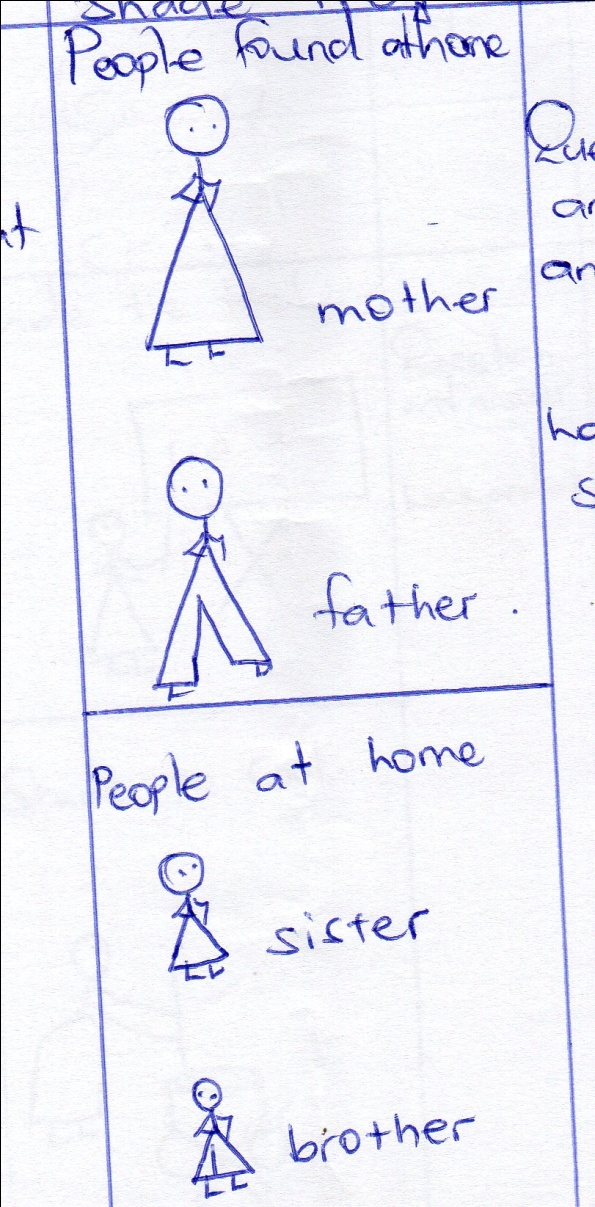 People found athome
mother
father .
People at home
sister
brother